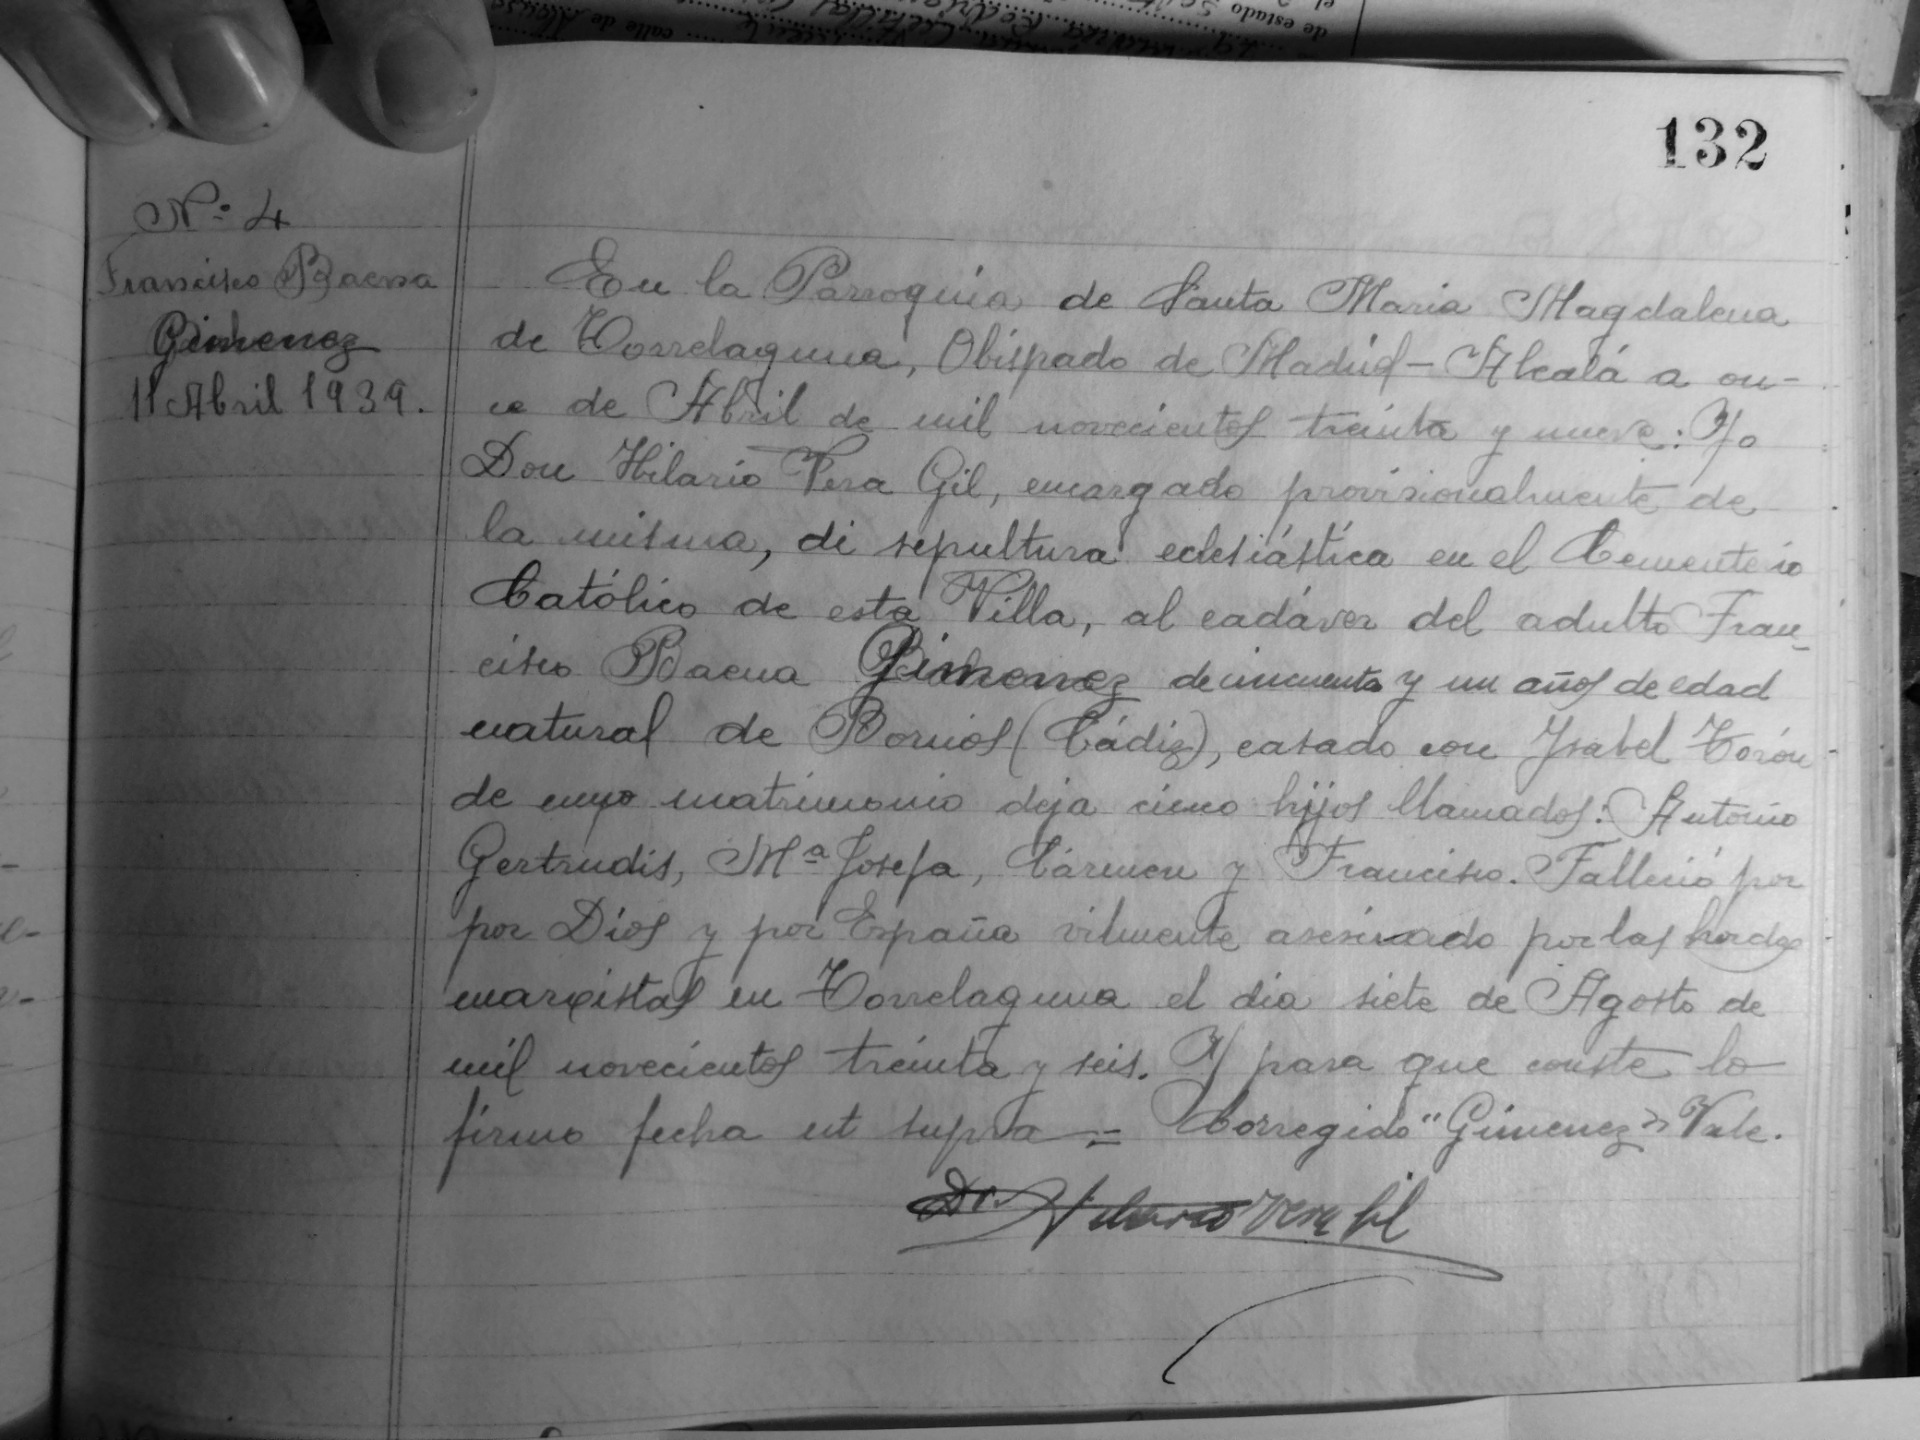 132
Nº 4
Francisco Baena
Gimenez
11 Abril 1939.
En la Parroquia de Santa Maria Magdalena
de Torrelaguna, Obispado de Madrid-Alcalá a on-
ce de Abril de mil novecientos treinta y nueve: Yo
Don Hilario Vera Gil, encargado provisionalmente de
la misma, di sepultura eclesiástica en el Cementerio
Católico de esta Villa, al cadáver del adulto Fran-
cisco Baena Gimenez de cincuenta y un años de edad
natural de Bornos (Cádiz), casado con Ysabel Torón
de cuyo matrimonio deja cinco hijos llamados: Antonio
Gertrudis, Mª Josefa, Cármen y Francisco. Falleció por
por Dios y por España vilmente asesinado por las hordas
marxistas en Torrelaguna el dia siete de Agosto de
mil novecientos treinta y seis. Y para que conste lo
firmo fecha ut supra = Corregido "Gimenez" Vale.
Dr. Hilario Vera Gil
de estado
calle de